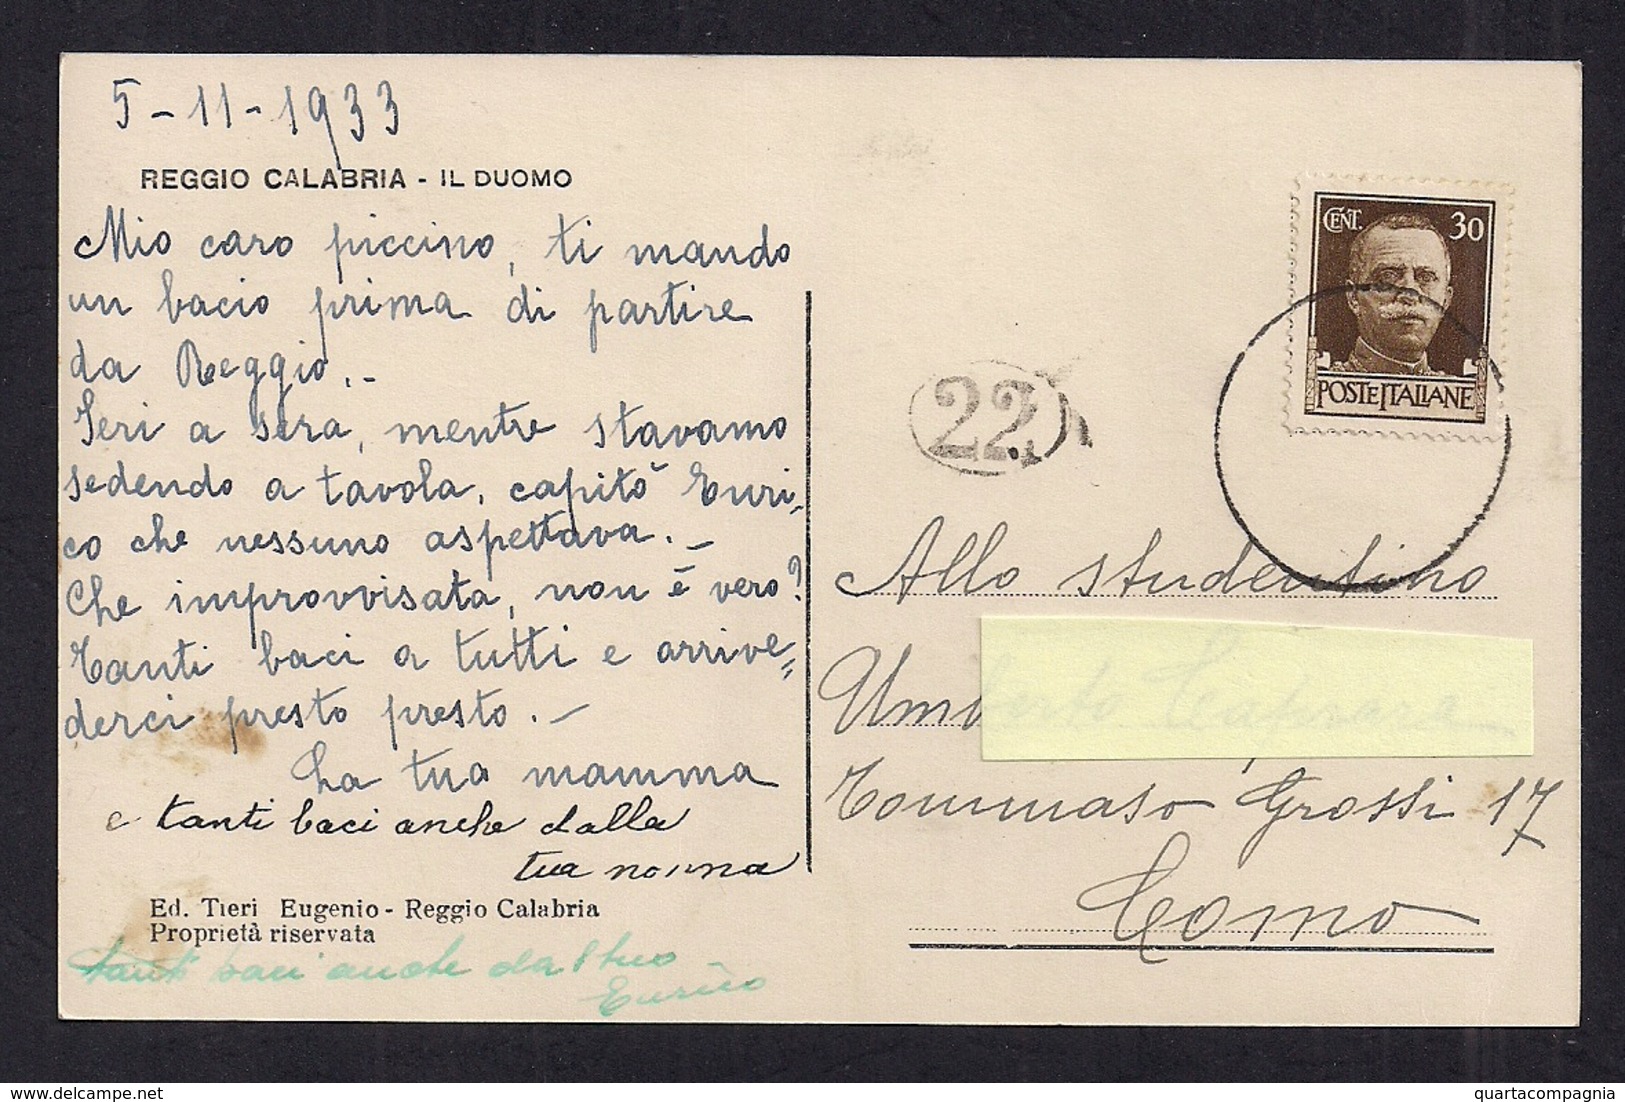 5-11-1933
REGGIO CALABRIA - IL DUOMO
Mio caro piccino, ti mando
un bacio prima di partire
da Reggio.-
Ieri a sera, mentre stavamo
sedendo a tavola, capitò Enri-
co che nessuno aspettava.-
Che improvvisata, non è vero?
Tanti baci a tutti e arrive=
derci presto presto.-
La tua mamma
e tanti baci anche dalla
tua nonna
Ed. Tieri Eugenio - Reggio Calabria
Proprietà riservata
tanti baci anche dal tuo
Enrico
CENT. 30
POSTE ITALIANE
22
Allo studentino
Umberto
Tommaso Grossi 17
Como
delcampe.net
quartacompagnia